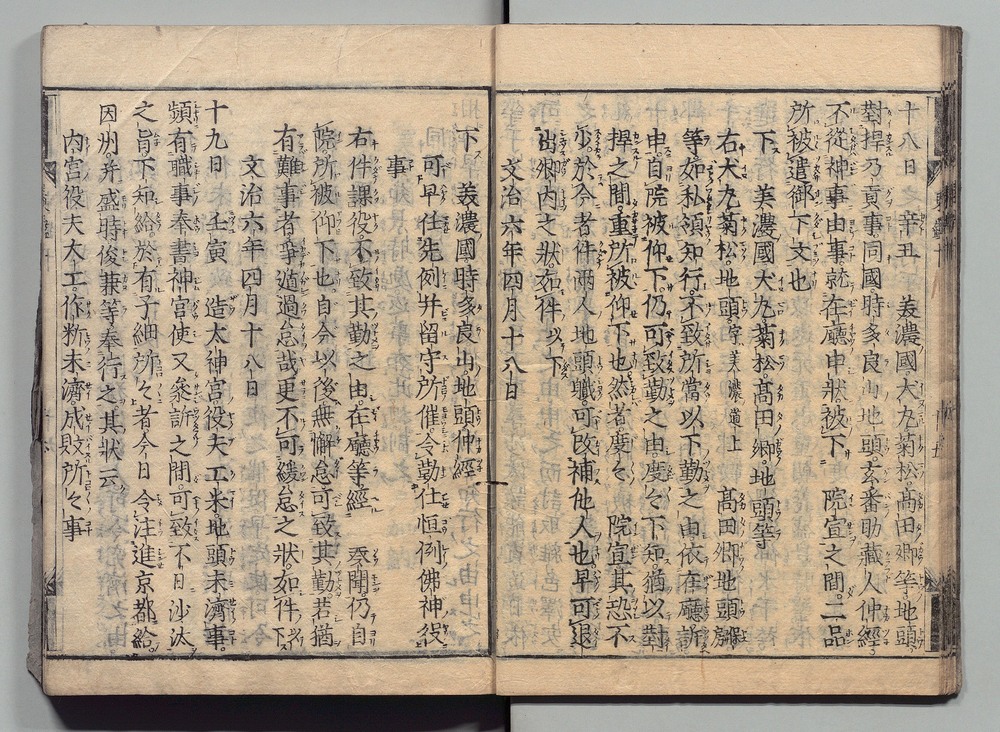 十八日 辛丑 美濃國犬丸菊松高田郷等地頭
對捍乃貢事同國時多良山地頭玄蕃助藏人仲經
不從神事由事就在廳申狀被下 院宣之間二品
所被遣御下文也
下 美濃國犬丸菊松高田郷地頭等
右犬丸菊松地頭字美濃道上 高田郷地頭保房
等如私領知行不致所當以下勤之由依在廳訴
申自院被仰下仍可致勤之由度々下知猶以對
捍之間重所被仰下也然者度々 院宣其恐不
少於今者件兩人地頭職可改補他人也早可退
出郷内之狀如件以下
文治六年四月十八日
下 美濃國時多良山地頭仲經
可早仕先例并留守所催令勤仕恒例佛神役
事
右件課役不致其勤之由在廳等經 奏聞仍自
院所被仰下也自今以後無懈怠可致其勤若猶
有難事者爭遁過怠哉更不可緩怠之狀如件下
文治六年四月十八日
十九日 壬寅 造太神宮役夫工米地頭未濟事
頻有職事奉書神宮使又參訴之間可致不日沙汰
之旨下知給於有子細所々者今日 令注進京都給
因州并盛時俊兼等奉行之其狀云
内宮役夫大工作料未濟成敗所々事